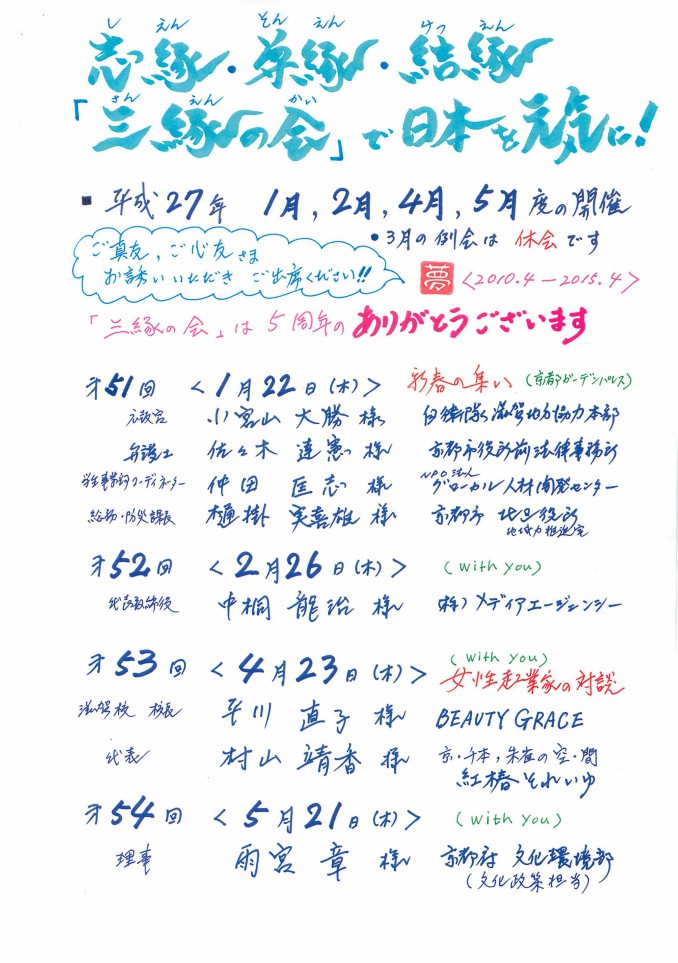 志縁・尊縁・結縁
しえん そんえん けつえん
「三縁の会」で日本を元気に!
さんえん かい
■ 平成27年 1月,2月,4月,5月度の開催
●3月の例会は 休会です
ご真友,ご心友さま
お誘いいただき ご出席ください!!
夢 <2010.4-2015.4>
「三縁の会」は5周年のありがとうございます
才51回 <1月22日(木)> 新春の集い (京都ガーデンパレス)
小宮山 大勝 様 自衛隊 滋賀地方協力本部
弁護士 佐々木 達憲 様 京都市役所前法律事務所
仲田 匡志 様 NPO法人 グローカル人材開発センター
総務・防災課長 樋掛 実喜雄 様 京都市
地域力推進室
才52回 <2月26日(木)> (with you)
代表取締役 中桐 龍治 様 (株)メディアエージェンシー
才53回 <4月23日(木)> (with you)
女性起業家の対談
滋賀校 校長 平川 直子 様 BEAUTY GRACE
代表 村山 靖香 様 京・千本,朱雀の空・間
紅椿それいゆ
才54回 <5月21日(木)> (with you)
理事 雨宮 章 様 京都府 文化環境部
(文化政策担当)